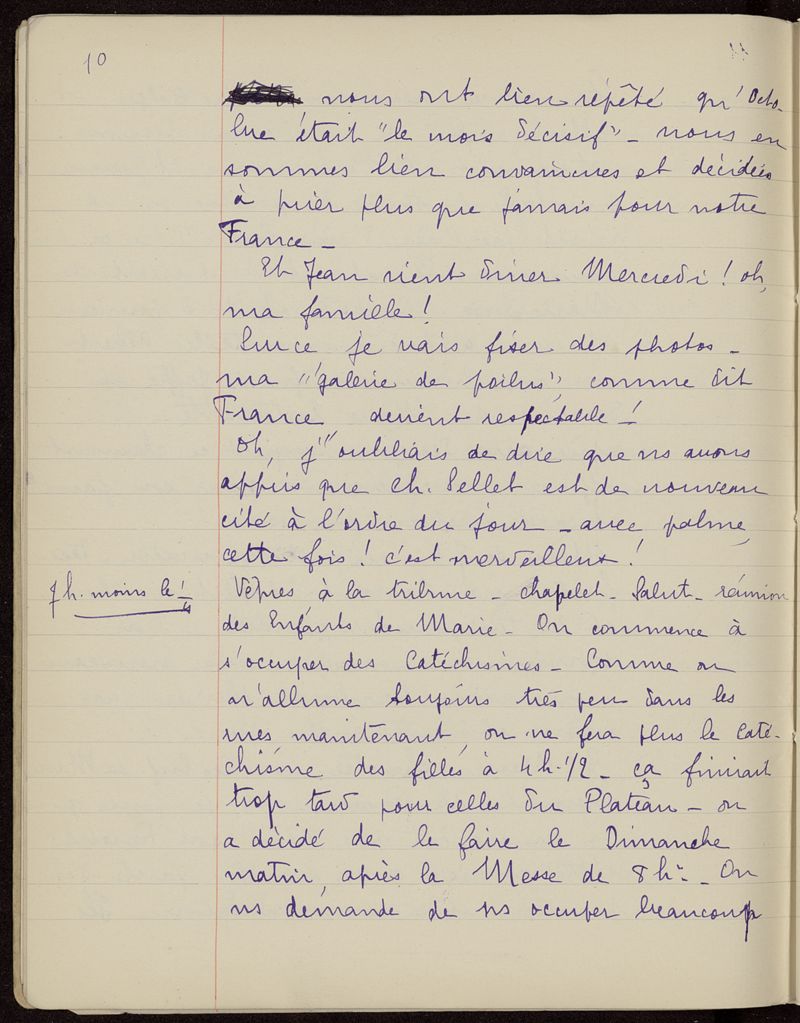 10
nous ont bien répêté qu'Octo-
bre était "le mois décisif" - nous en
sommes bien convaincues et décidées
à prier plus que jamais pour notre
France -
Et Jean vient dîner Mercredi ! oh,
ma famille !
Sur ce je vais fixer des photos -
ma "galerie de poilus", comme dit
France, devient respectable !
Oh, j'oubliais de dire que ns avons
appris que Ch. Pellet est de nouveau
cité à l'ordre du jour - avec palme,
cette fois ! c'est merveilleux !
7 h. moins le 1/4
Vêpres à la tribune - chapelet - Salut - réunion
des Enfants de Marie - On commence à
s'occuper des Catéchismes - Comme on
n'allume toujours très peu dans les
rues maintenant, on ne fera plus le caté-
chisme des filles à 4 h. 1/2 - ça finirait
trop tard pour celles du Plateau - on
a décidé de le faire le Dimanche
matin, après la Messe de 8 h. - On
ns demande de ns occuper beaucoup